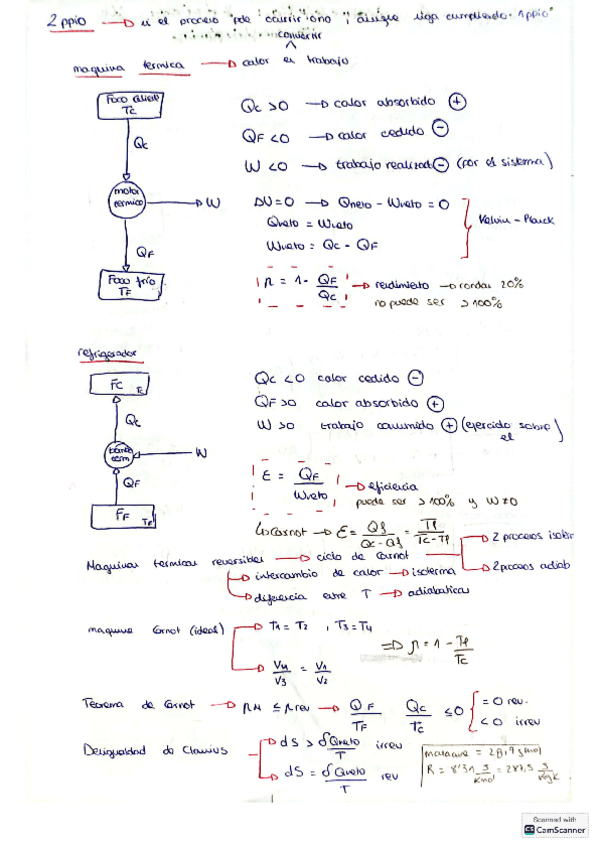 2 ppio → si el proceso pde ocurrir o no, aunque siga cumpliendo 1 ppio
convertir
maquina termica → calor en trabajo
Foco caliente
Tc
Qc
motor
termico
W
QF
Foco frío
TF
Qc >0 → calor absorbido +
QF <0 → calor cedido -
W <0 → trabajo realizado - (por el sistema)
ΔU=0 → Qneto - Wneto = 0
Qneto = Wneto
Wneto = Qc - QF
Kelvin-Planck
η = 1 - QF/Qc → rendimiento → rondar 20%
no puede ser >100%
refrigerador
FC Tc
Qc
bomba
term
W
QF
FF TF
Qc <0 calor cedido -
QF >0 calor absorbido +
W >0 trabajo consumido + (ejercido sobre el)
ε = QF/Wneto → eficiencia
puede ser >100% y W≠0
↳ Carnot → ε = Qf/(Qc-Qf) = Tf/(Tc-Tf)
Maquinas termicas reversibles → ciclo de Carnot → 2 procesos isoter
→ 2 procesos adiab
→ intercambio de calor → isoterma
→ diferencia entre T → adiabatica
maquina Carnot (ideal) → T1 = T2 , T3 = T4
⇒ η = 1 - Tf/Tc
→ V4/V3 = V1/V2
Teorema de Carnot → ηM ≤ ηrev → QF/TF Qc/Tc ≤0 { = 0 rev.
< 0 irrev
Desigualdad de Clausius → dS > δQneto/T irrev
→ dS = δQneto/T rev
R = 8'31 J/Kmol = 287,5 J/KgK
Scanned with
CS CamScanner